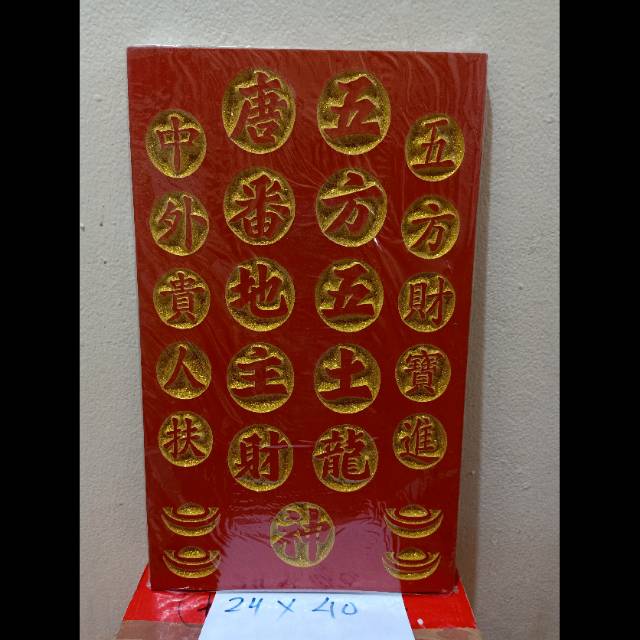 五方財寶進
五方五土龍
唐番地主財
神
中外貴人扶
24 X 40